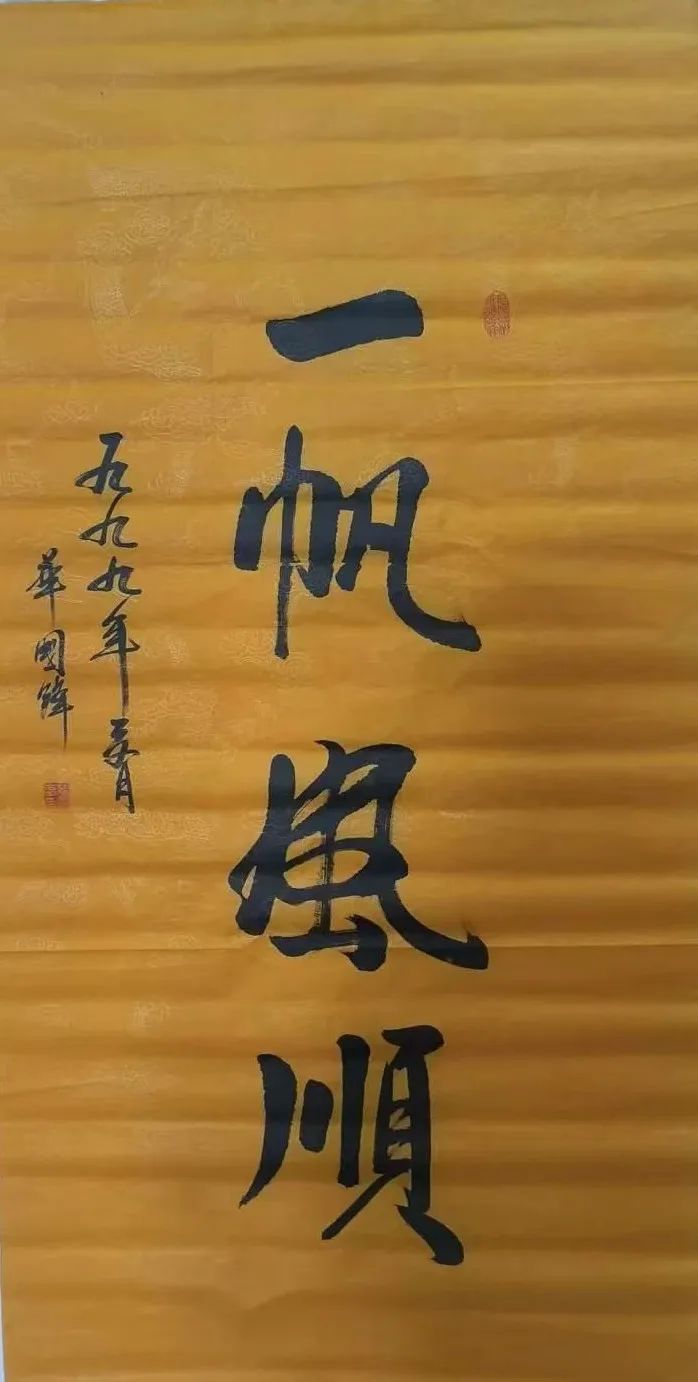 一帆風順
一九九九年月
華國鋒